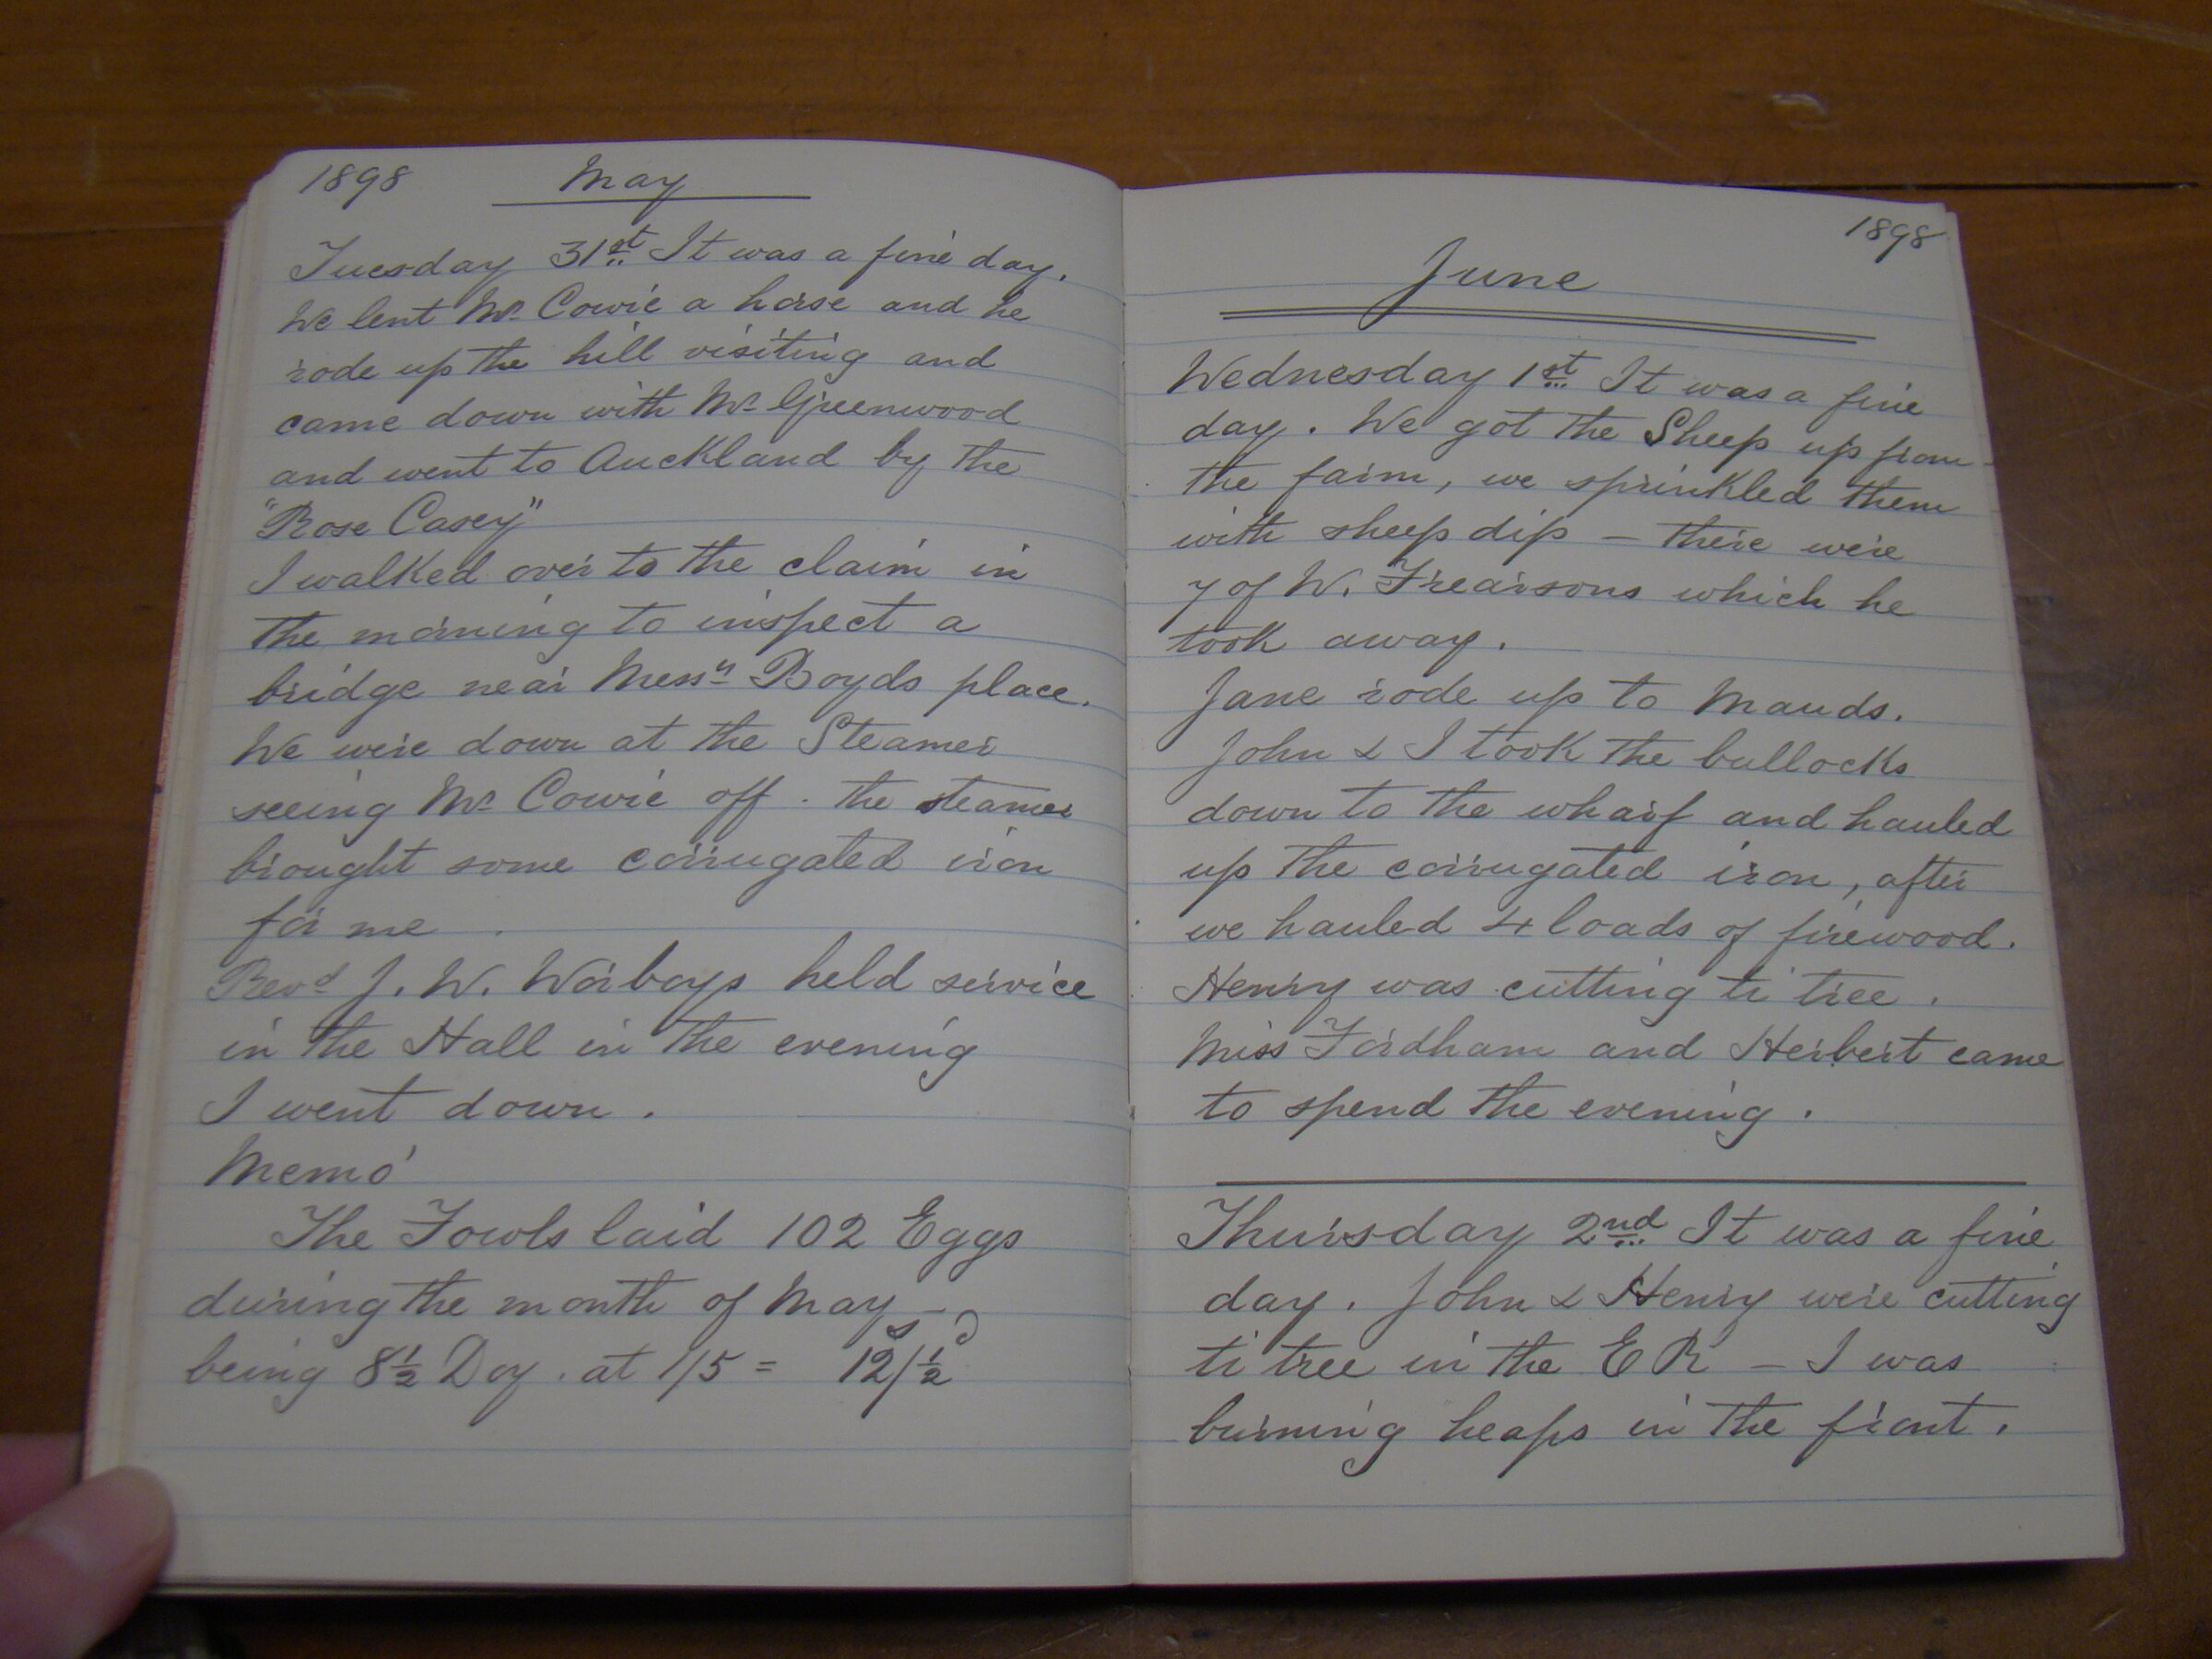 1898 May
Tuesday 31st It was a fine day.
We lent Mr Cowie a horse and he
rode up the hill visiting and
came down with Mr Greenwood
and went to Auckland by the
"Rose Casey"
I walked over to the claim in
the morning to inspect a
bridge near Messrs Boyds place.
We were down at the Steamer
seeing Mr Cowie off. the steamer
brought some corrugated iron
for me.
Revd J. W. Worboys held service
in the Hall in the evening
I went down.
Memo
The Fowls laid 102 Eggs
during the month of May –
being 8½ Doz. at 1/5 = 12/½
1898
June
Wednesday 1st It was a fine
day. We got the Sheep up from
the farm, we sprinkled them
with sheep dip – there were
7 of W. Frearsons which he
took away.
Jane rode up to Mauds.
John & I took the bullocks
down to the wharf and hauled
up the corrugated iron, after
we hauled 4 loads of firewood.
Henry was cutting ti tree.
Miss Fordham and Herbert came
to spend the evening.
Thursday 2nd It was a fine
day. John & Henry were cutting
ti tree in the E R – I was
burning heaps in the front.